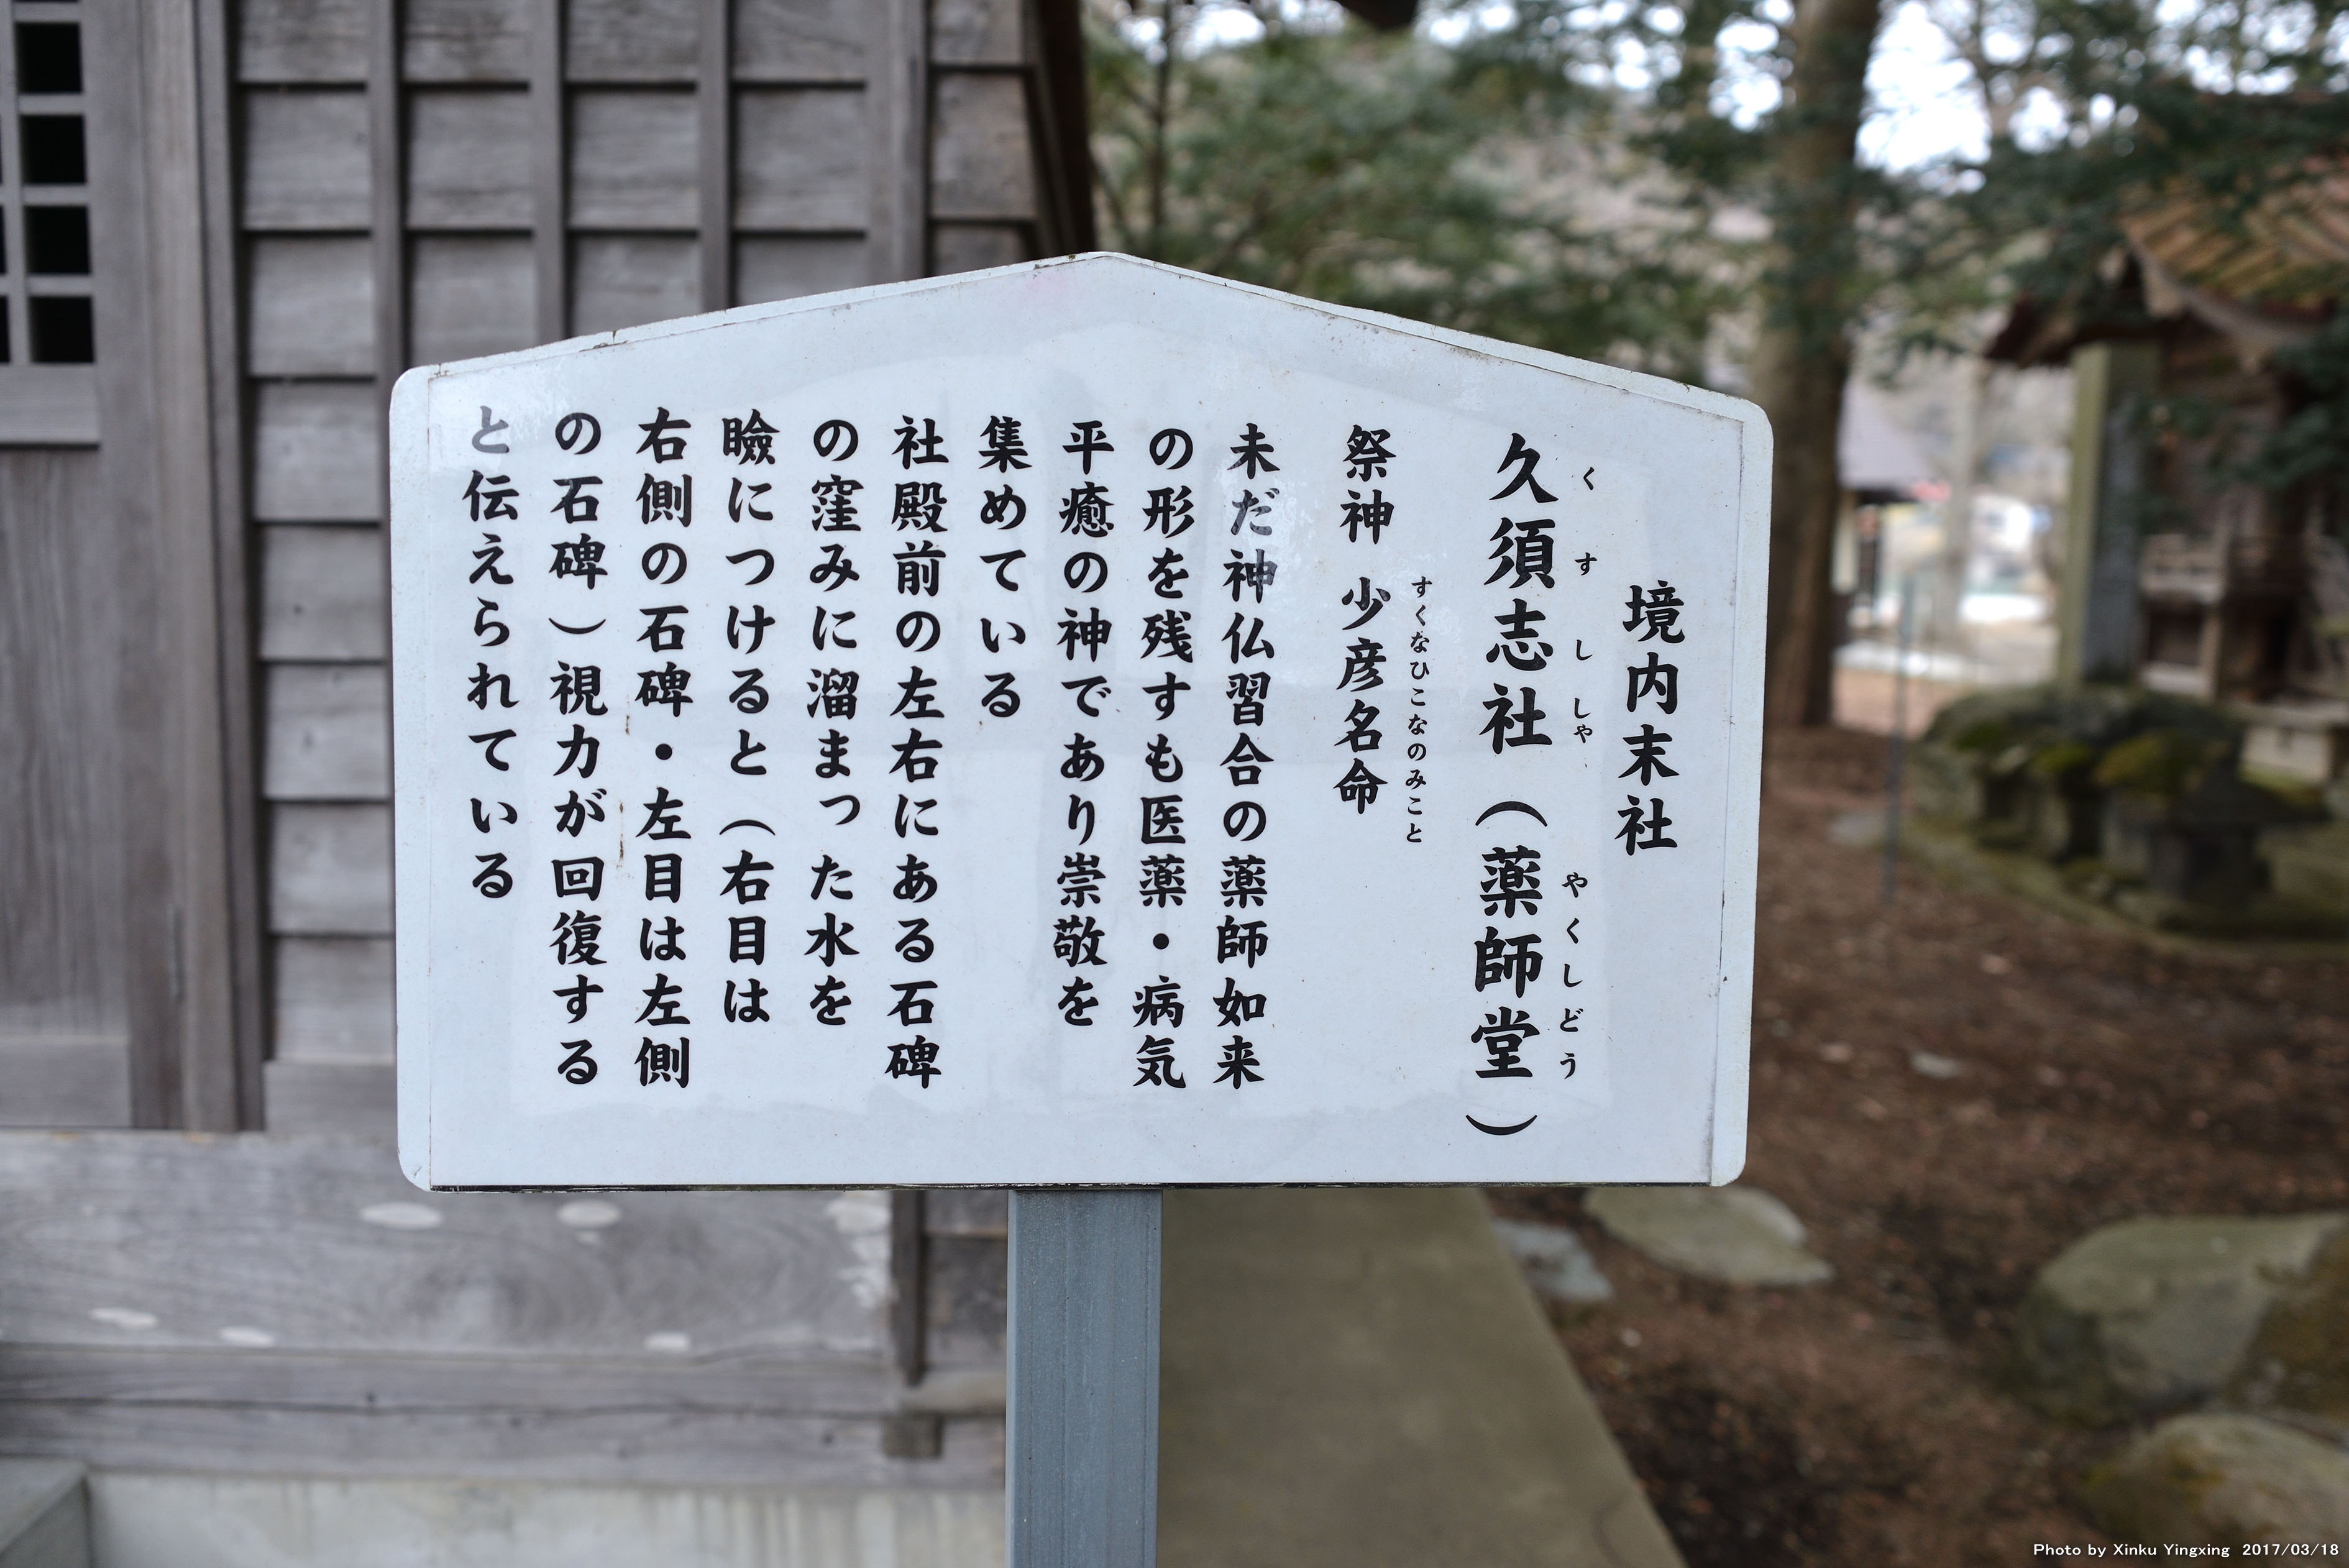 境内末社
久須志社（薬師堂）
くすししゃ　やくしどう
祭神　少彦名命
すくなひこなのみこと
未だ神仏習合の薬師如来
の形を残すも医薬・病気
平癒の神であり崇敬を
集めている
社殿前の左右にある石碑
の窪みに溜まった水を
瞼につけると（右目は
右側の石碑・左目は左側
の石碑）視力が回復する
と伝えられている
Photo by Xinku Yingxing 2017/03/18